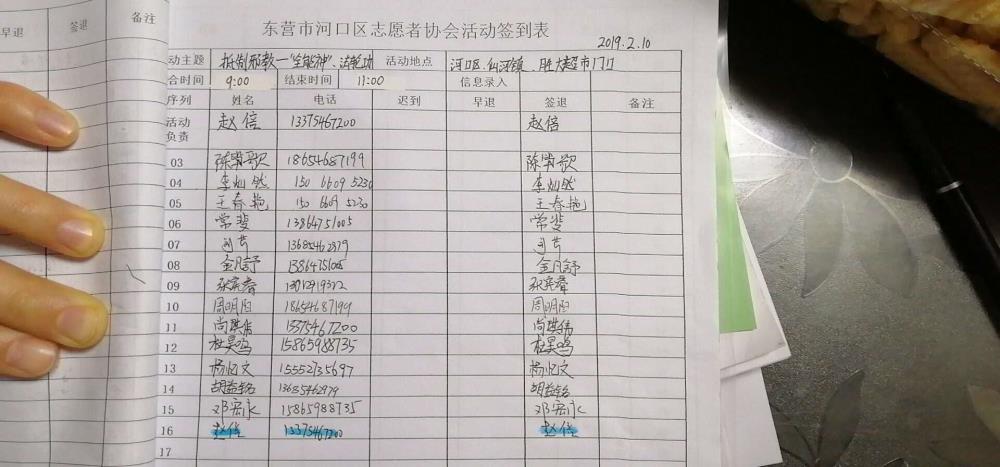 备注
早退
签退
东营市河口区志愿者协会活动签到表
2019.2.10
动主题 抵制邪教—"全能神"、法轮功 活动地点 河口区.仙河镇.胜大超市门口
合时间 9:00 结束时间 11:00 信息录入
序列 姓名 电话 迟到 早退 签退 备注
活动负责 赵倍 13375467200 赵倍
03 18654687199
04 李灿然 150 6609 5230 李灿然
05 王春艳 150 6609 5230 王春艳
06 常斐 13864751005 常斐
07 13685462979
08 金月舒 金月舒
09
10 周明阳 18654687199 周明阳
11 尚琪伟 13375467200 尚琪伟
12 杜昊鸣 15865988735 杜昊鸣
13 杨忆文 15552735697 杨忆文
14 胡益铭 13685462979 胡益铭
15 邓宏永 15865988735 邓宏永
16 赵倍 13375467200 赵倍
17